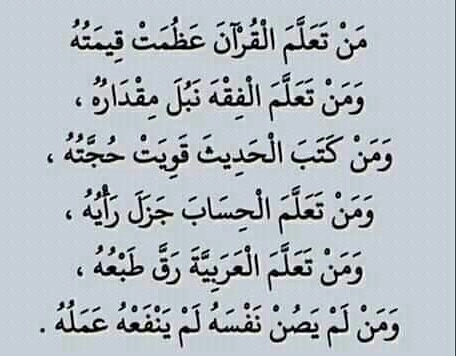 مَنْ تَعَلَّمَ الْقُرْآنَ عَظُمَتْ قِيمَتُهُ
وَمَنْ تَعَلَّمَ الْفِقْهَ نَبُلَ مِقْدَارُهُ ،
وَمَنْ كَتَبَ الْحَدِيثَ قَوِيَتْ حُجَّتُهُ ،
وَمَنْ تَعَلَّمَ الْحِسَابَ جَزَلَ رَأْيُهُ ،
وَمَنْ تَعَلَّمَ الْعَرَبِيَّةَ رَقَّ طَبْعُهُ ،
وَمَنْ لَمْ يَصُنْ نَفْسَهُ لَمْ يَنْفَعْهُ عَمَلُهُ .